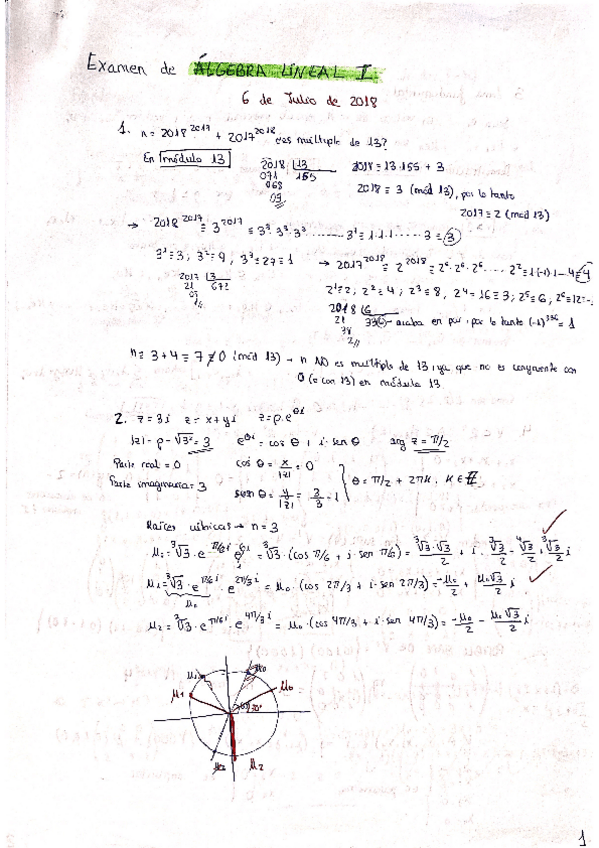 Examen de ÁLGEBRA LINEAL I
6 de Julio de 2018
1. n = 2018^2017 + 2017^2018 ¿es múltiplo de 13?
En módulo 13
2018 |13
071 155
068
03
2018 = 13·155 + 3
2018 ≡ 3 (mód 13), por lo tanto
2017 ≡ 2 (mód 13)
→ 2018^2017 ≡ 3^2017 ≡ 3^3·3^3·3^3 ........ 3^1 ≡ 1·1·1 ...... 3 = 3
3^1 ≡ 3; 3^2 ≡ 9, 3^3 ≡ 27 ≡ 1
→ 2017^2018 ≡ 2^2018 ≡ 2^6·2^6·2^6 ... 2^2 ≡ 1·(-1)·1 - 4 ≡ 4
2017 |3
21 672
07
1
2^1 ≡ 2; 2^2 ≡ 4; 2^3 ≡ 8, 2^4 ≡ 16 ≡ 3; 2^5 ≡ 6; 2^6 ≡ 12 ≡ -
2018 |6
21 336 → acaba en par, por lo tanto (-1)^336 = 1
38
2
n ≡ 3 + 4 ≡ 7 ≢ 0 (mód 13) → n NO es múltiplo de 13, ya que no es congruente con
0 (o con 13) en módulo 13
2. z = 3i z = x + yi z = ρ·e^θi
|z| = ρ = √3² = 3 e^θi = cos θ + i·sen θ arg z = π/2
Parte real = 0 cos θ = x/|z| = 0
Parte imaginaria = 3 sen θ = y/|z| = 3/3 = 1
θ = π/2 + 2πK, K ∈ Z
Raíces cúbicas → n = 3
μ₀ = ∛3 · e^π/6 i = ∛3 · (cos π/6 + i·sen π/6) = ∛3·√3/2 + i·∛3/2
μ₁ = ∛3 · e^π/6 i · e^2π/3 i = μ₀ · (cos 2π/3 + i·sen 2π/3) = -μ₀/2 + μ₀√3/2 i
μ₀
μ₂ = ∛3 · e^π/6 i · e^4π/3 i = μ₀ · (cos 4π/3 + i·sen 4π/3) = -μ₀/2 - μ₀√3/2 i
μ₁
μ₀
30°
μ₂
1